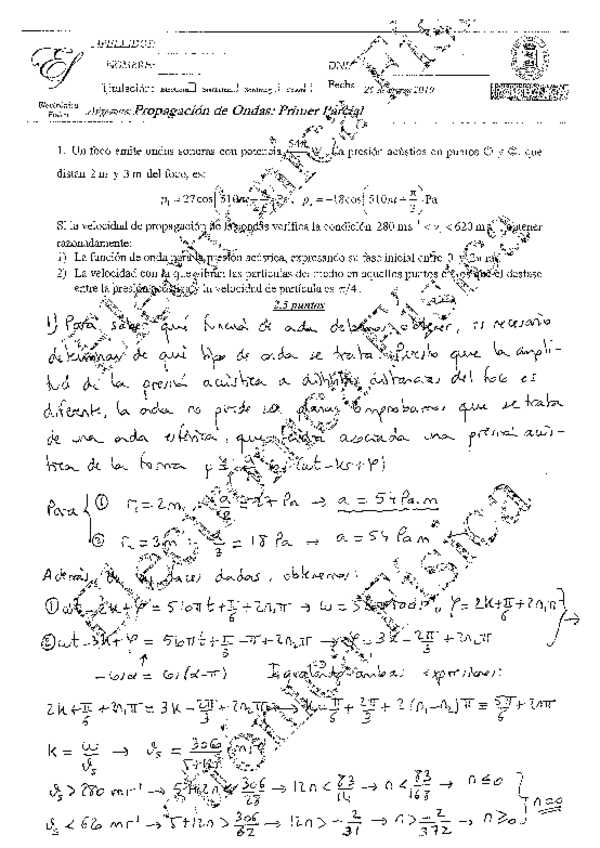 APELLIDOS:
NOMBRE:
DNI:
Titulación:
Fecha:
Electrónica
Física
Asignatura: Propagación de Ondas: Primer Parcial
1. Un foco emite ondas sonoras con potencia 54π W. La presión acústica en puntos ① y ②, que
distan 2 m y 3 m del foco, es:
p₁ = 27cos(510πt + π/6) Pa, p₂ = −18cos(510πt + π/3) Pa
Si la velocidad de propagación de las ondas verifica la condición 280 ms⁻¹ < vₛ < 620 ms⁻¹, obtener
razonadamente:
1) La función de onda para la presión acústica, expresando su fase inicial entre 0 y 2π rad.
2) La velocidad con la que vibran las partículas del medio en aquellos puntos en los que el desfase
entre la presión acústica y la velocidad de partícula es π/4.
2.5 puntos
1) Para saber qué función de onda debemos obtener, es necesario
determinar de qué tipo de onda se trata. Puesto que la ampli-
tud de la presión acústica a distintas distancias del foco es
diferente, la onda no puede ser plana. Comprobamos que se trata
de una onda esférica, que tendrá asociada una presión acús-
tica de la forma p = a/r cos(ωt − kr + φ)
Para { ① r₁ = 2m, a/2 = 27 Pa → a = 54 Pa.m
② r₂ = 3m, a/3 = 18 Pa → a = 54 Pa m
Además, de las fases dadas, obtenemos:
① ωt − 2k + φ = 510πt + π/6 + 2n₁π → ω = 510π rad/s, φ = 2k + π/6 + 2n₁π
② ωt − 3k + φ = 510πt + π/3 − π + 2n₂π → φ = 3k − 2π/3 + 2n₂π
−cosα = cos(α−π) Igualando ambas expresiones:
2k + π/6 + 2n₁π = 3k − 2π/3 + 2n₂π → k = π/6 + 2π/3 + 2(n₁−n₂)π = 5π/6 + 2nπ
k = ω/vₛ → vₛ = 3060/(5+12n) ms⁻¹
vₛ > 280 ms⁻¹ → 5+12n < 306/28 → 12n < 83/14 → n < 83/168 → n ≤ 0
vₛ < 620 ms⁻¹ → 5+12n > 306/62 → 12n > −2/31 → n > −2/372 → n ≥ 0 } n = 0